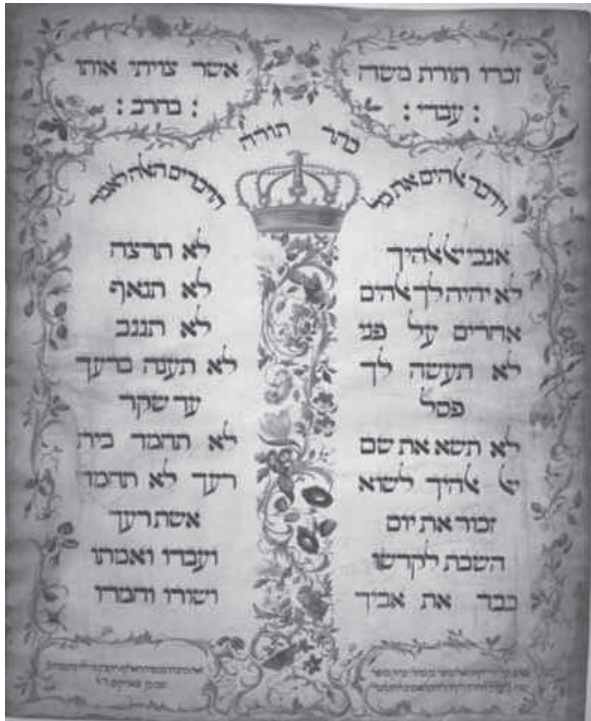 זכרו תורת משה
: עבדי :
אשר צויתי אותו
: בחרב :
כתר תורה
וידבר ﭏהים את כל
הדברים האלה לאמר
אנכי יי ﭏהיך
לא יהיה לך ﭏהים
אחרים על פני
לא תעשה לך
פסל
לא תשא את שם
יי ﭏהיך לשוא
זכור את יום
השבת לקדשו
כבד את אביך
לא תרצח
לא תנאף
לא תגנב
לא תענה ברעך
עד שקר
לא תחמד בית
רעך לא תחמד
אשת רעך
ועבדו ואמתו
ושורו וחמרו